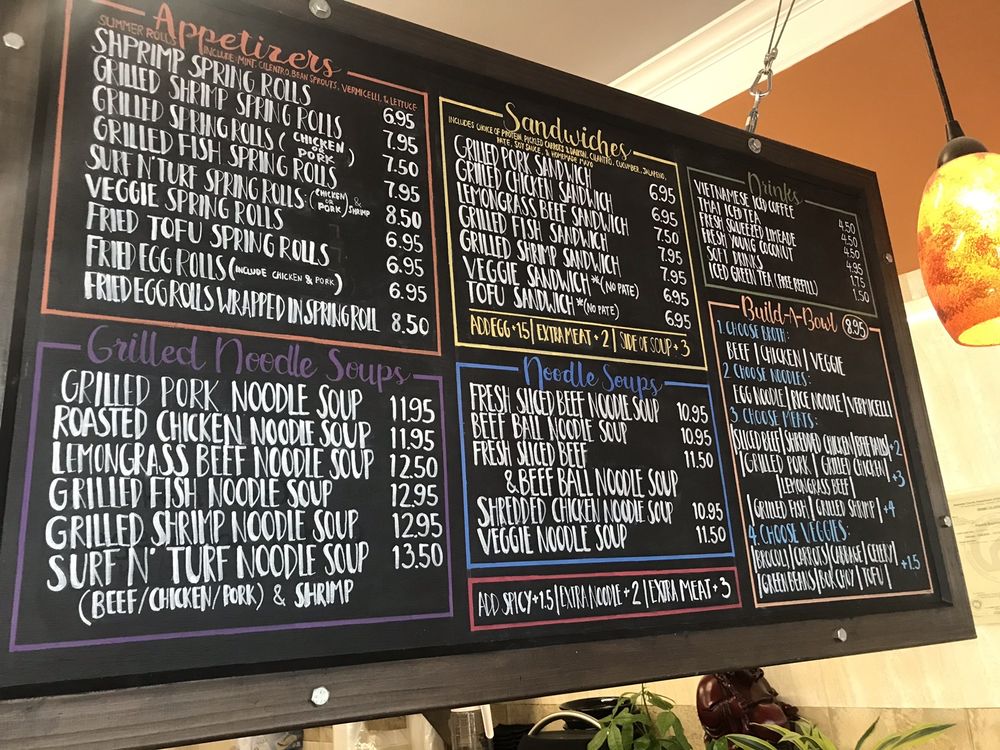 Appetizers
SUMMER ROLLS INCLUDE: MINT, CILENTRO, BEAN SPROUTS, VERMICELLI, & LETTUCE
SHPRIMP SPRING ROLLS 6.95
GRILLED SHRIMP SPRING ROLLS 7.95
GRILLED SPRING ROLLS (CHICKEN OR PORK) 7.50
GRILLED FISH SPRING ROLLS 7.95
SURF N' TURF SPRING ROLLS: (CHICKEN OR PORK) & SHRIMP 8.50
VEGGIE SPRING ROLLS 6.95
FRIED TOFU SPRING ROLLS 6.95
FRIED EGG ROLLS (INCLUDE CHICKEN & PORK) 6.95
FRIED EGG ROLLS WRAPPED IN SPRING ROLL 8.50
Grilled Noodle Soups
GRILLED PORK NOODLE SOUP 11.95
ROASTED CHICKEN NOODLE SOUP 11.95
LEMONGRASS BEEF NOODLE SOUP 12.50
GRILLED FISH NOODLE SOUP 12.95
GRILLED SHRIMP NOODLE SOUP 12.95
SURF N' TURF NOODLE SOUP 13.50
(BEEF/CHICKEN/PORK) & SHRIMP
Sandwiches
INCLUDES CHOICE OF PROTEIN, PICKLED CARROTS & DAIKON, CILANTRO, CUCUMBER, JALAPENO,
PATE, SOY SAUCE, & HOMEMADE MAYO
GRILLED PORK SANDWICH 6.95
GRILLED CHICKEN SANDWICH 6.95
LEMONGRASS BEEF SANDWICH 7.50
GRILLED FISH SANDWICH 7.95
GRILLED SHRIMP SANDWICH 7.95
VEGGIE SANDWICH *(NO PATE) 6.95
TOFU SANDWICH *(NO PATE) 6.95
ADD EGG +1.5 | EXTRA MEAT + 2 | SIDE OF SOUP + 3
Noodle Soups
FRESH SLICED BEEF NOODLE SOUP 10.95
BEEF BALL NOODLE SOUP 10.95
FRESH SLICED BEEF 11.50
& BEEF BALL NOODLE SOUP
SHREDDED CHICKEN NOODLE SOUP 10.95
VEGGIE NOODLE SOUP 11.50
ADD SPICY +1.5 | EXTRA NOODLE + 2 | EXTRA MEAT + 3
Drinks
VIETNAMESE ICED COFFEE 4.50
THAI ICED TEA 4.50
FRESH SQUEEZED LIMEADE 4.50
FRESH YOUNG COCONUT 4.95
SOFT DRINKS 1.75
ICED GREEN TEA (FREE REFILL) 1.50
Build-A-Bowl 8.95
1. CHOOSE BROTH:
BEEF | CHICKEN | VEGGIE
2. CHOOSE NOODLES:
EGG NOODLE | RICE NOODLE | VERMICELLI
3. CHOOSE MEATS:
|SLICED BEEF | SHREDDED CHICKEN | BEEF BALLS| +2
|GRILLED PORK | GRILLED CHICKEN|
|LEMONGRASS BEEF| +3
|GRILLED FISH | GRILLED SHRIMP| +4
4. CHOOSE VEGGIES:
|BROCOLI | CARROTS | CABBAGE | CELERY|
|GREEN BEANS | BOK CHOY | TOFU| +1.5